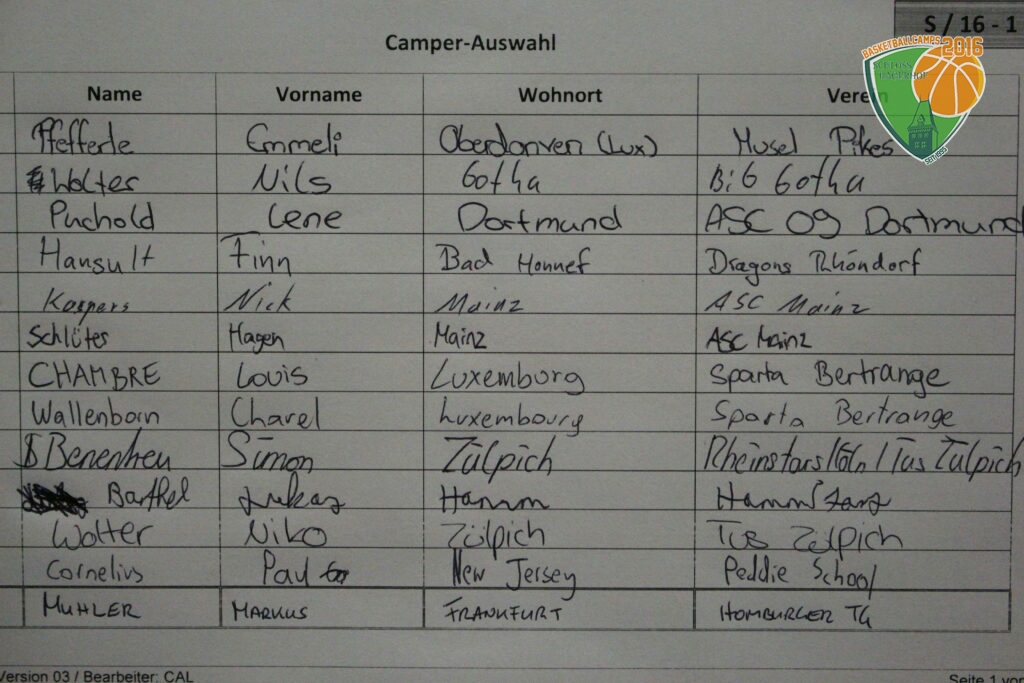 S / 16 - 1
BASKETBALLCAMPS 2016
Camper-Auswahl
SCHLOSS HAGERHOF
SEIT 1988
Name Vorname Wohnort Verein
Pfefferle Emmeli Oberdonven (Lux) Musel Pikes
Wolter Nils Gotha BiG Gotha
Puchold Lene Dortmund ASC 09 Dortmund
Hansult Finn Bad Honnef Dragons Rhöndorf
Kaspers Nick Mainz ASC Mainz
Schlüter Hagen Mainz ASC Mainz
CHAMBRE Louis Luxemburg Sparta Bertrange
Wallenborn Charel Luxembourg Sparta Bertrange
Simon Zülpich Rheinstars Köln / Tus Zülpich
Barthel Lukas Hamm Hammstars
Wolter Niko Zülpich TuS Zülpich
Cornelius Paul New Jersey Peddie School
MUHLER MARKUS FRANKFURT HOMBURGER TG
Version 03 / Bearbeiter: CAL Seite 1 von